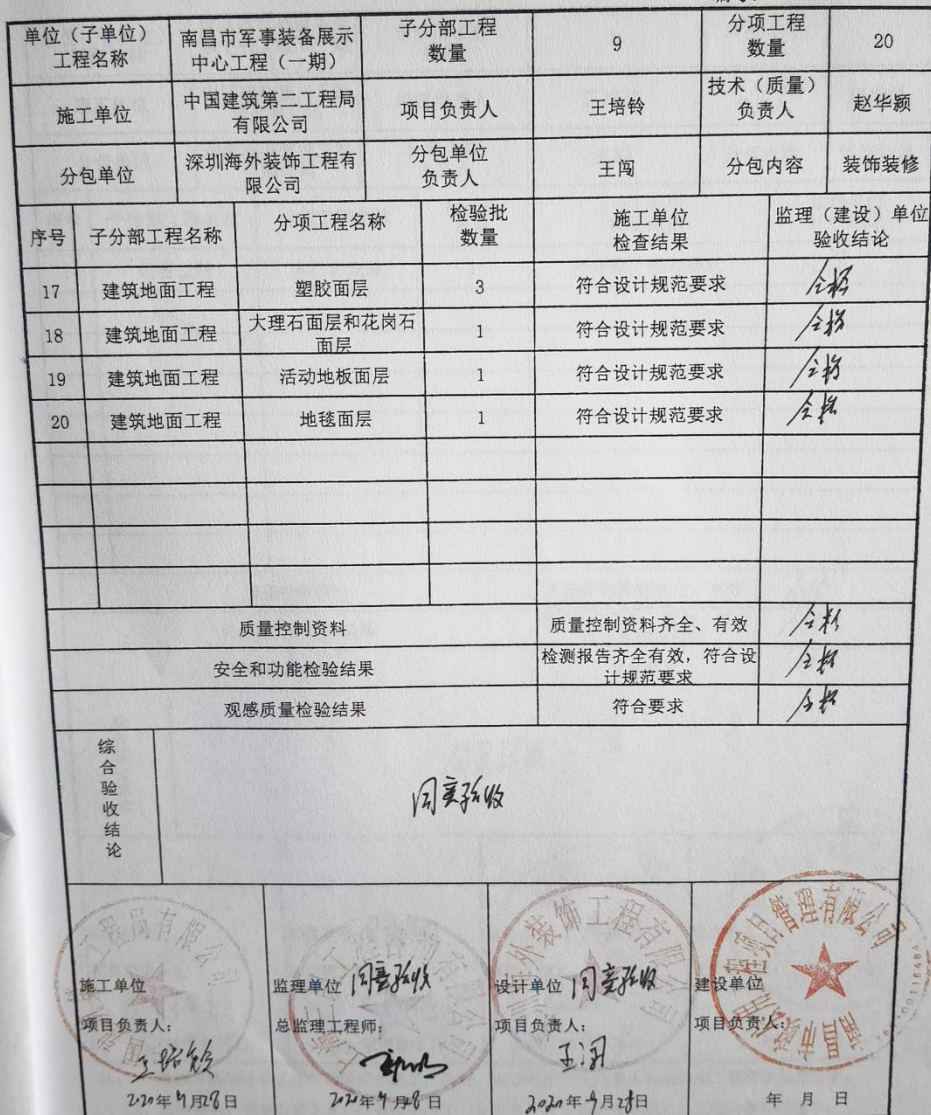 单位（子单位）
工程名称
南昌市军事装备展示
中心工程（一期）
子分部工程
数量
9
分项工程
数量
20
施工单位
中国建筑第二工程局
有限公司
项目负责人
王培铃
技术（质量）
负责人
赵华颖
分包单位
深圳海外装饰工程有
限公司
分包单位
负责人
王闯
分包内容
装饰装修
序号
子分部工程名称
分项工程名称
检验批
数量
施工单位
检查结果
监理（建设）单位
验收结论
17
建筑地面工程
塑胶面层
3
符合设计规范要求
合格
18
建筑地面工程
大理石面层和花岗石
面层
1
符合设计规范要求
合格
19
建筑地面工程
活动地板面层
1
符合设计规范要求
合格
20
建筑地面工程
地毯面层
1
符合设计规范要求
合格
质量控制资料
质量控制资料齐全、有效
合格
安全和功能检验结果
检测报告齐全有效，符合设
计规范要求
合格
观感质量检验结果
符合要求
合格
综合验收结论
同意验收
施工单位
项目负责人：
2020年
28日
监理单位 同意验收
总监理工程师：
2020年
28日
设计单位 同意验收
项目负责人：
2020年
28日
建设单位
项目负责人：
年 月 日
工程局有限公司
外装饰工程有限公司
项目管理有限公司
南昌市